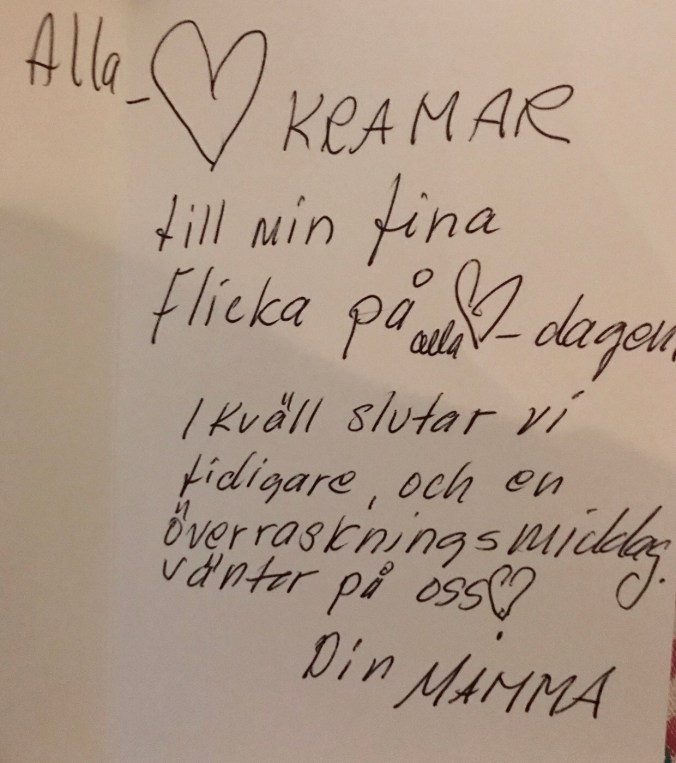 Alla-♡ KRAMAR
till min fina
flicka på alla ♡-dagen.
I kväll slutar vi
tidigare, och en
överraskningsmiddag.
väntar på oss♡
Din MAMMA